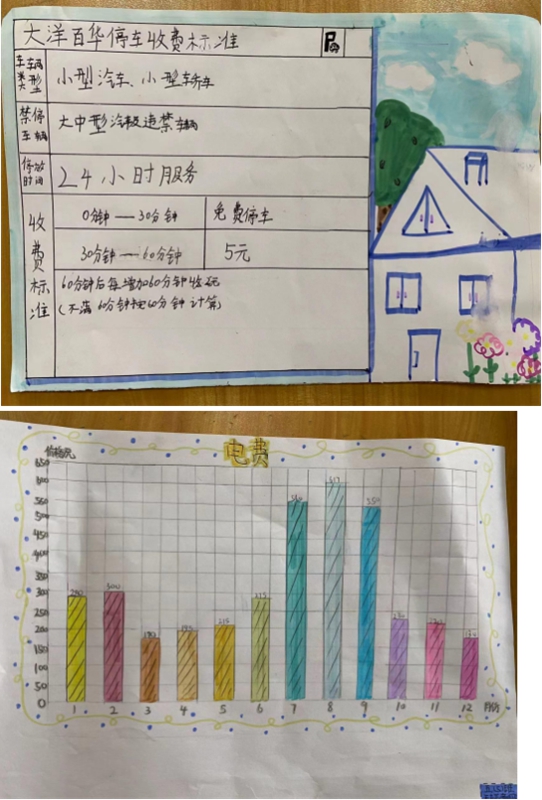 大洋百华停车收费标准
P
车辆类型
小型汽车、小型轿车
禁停车辆
大中型汽 违禁车辆
停放时间
24小时服务
收费标准
0分钟—30分钟
免费停车
30分钟—60分钟
5元
60分钟后每增加60分钟收5元
(不满60分钟按60分钟计算)
电费
650
600
500
450
400
350
300
250
200
150
100
50
0
300
550
1 2 3 4 5 6 7 8 9 10 11 12 月份